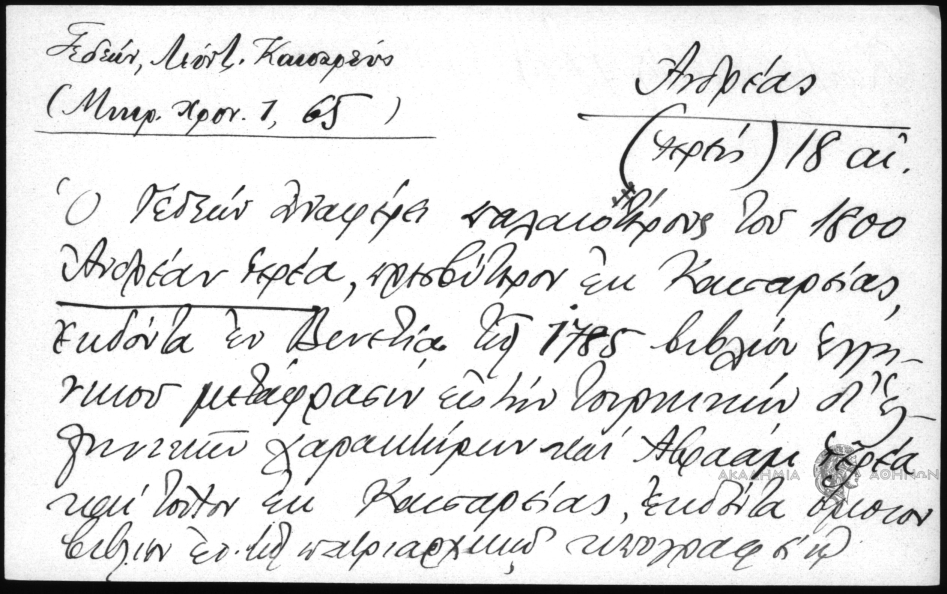 Γεδεών, Λεόντ. Καισαρεύς
(Μικρ. Χρον. 1, 65)
Ἀνδρέας
(ἱερεὺς) 18 αἰ.
Ὁ Γεδεών ἀναφέρει παλαιοτέρους τοῦ 1800
Ἀνδρέαν ἱερέα, πρεσβύτερον ἐκ Καισαρείας,
ἐκδόντα ἐν Βενετίᾳ τῷ 1785 βιβλίου ἑλλη-
νικοῦ μετάφρασιν εἰς τὴν τουρκικὴν δι' ἑλ-
ληνικῶν χαρακτήρων καὶ Ἀβραὰμ ἱερέα
καὶ τοῦτον ἐκ Καισαρείας, ἐκδόντα ὅμοιον
βιβλίον ἐν τῷ πατριαρχικῷ τυπογραφείῳ
ΑΚΑΔΗΜΙΑ ΑΘΗΝΩΝ